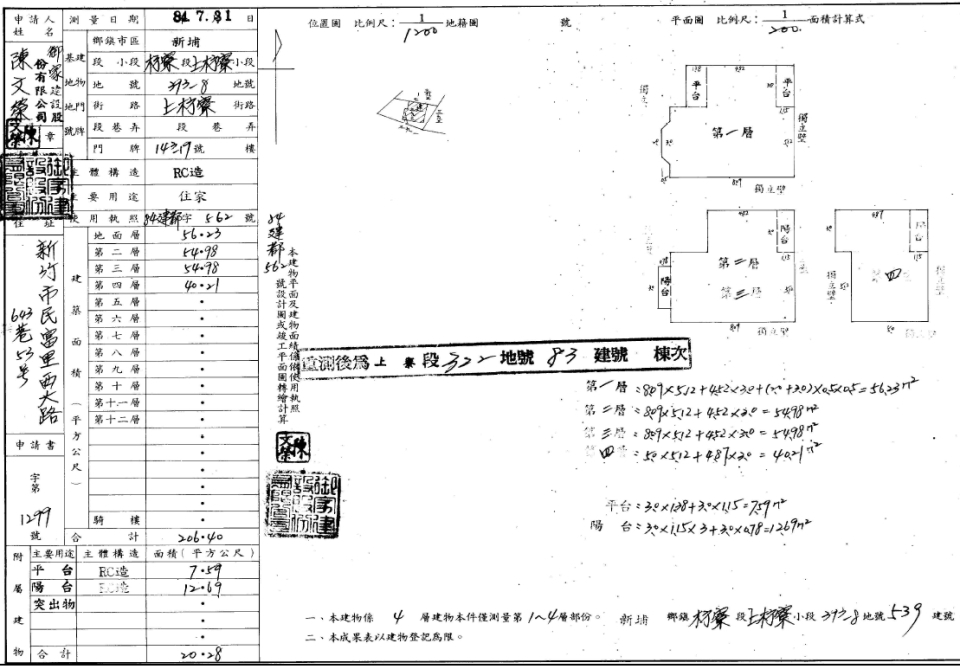 申請人姓名
鄉家建設股份有限公司
陳文榮
章
住址
新竹市民富里西大路
643巷53号
申請書
字第
1299
號
測量日期 84.7.31日
基地
建物門牌
鄉鎮市區 新埔
段小段 枋寮段上枋寮小段
地號 393-8 地號
街路 上枋寮 街路
段巷弄 段巷弄
門牌 14-19號 樓
主體構造 RC造
主要用途 住家
使用執照 84建都字562號
建築面積(平方公尺)
地面層 56.23
第二層 54.98
第三層 54.98
第四層 40.21
第五層
第六層
第七層
第八層
第九層
第十層
第十一層
第十二層
騎樓
合計 206.40
附屬建物
主要用途 主體構造 面積(平方公尺)
平台 RC造 7.59
陽台 RC造 12.69
突出物
合計 20.28
位置圖 比例尺:1/1200 地籍圖 號
平面圖 比例尺:1/200 面積計算式
84建都562
本建物平面及建物面積係依使用執照
號設計圖或竣工平面圖轉繪計算
陳文榮
平台
平台
第一層
獨立壁
獨立壁
獨立壁
陽台
陽台
第二層
第三層
獨立壁
陽台
四
獨立壁
獨立壁
重測後為上寮段322地號83建號 棟次
第一層:8.09×5.12+4.52×3.0+ ×0.5=56.23m²
第二層:8.09×5.12+4.52×3.0=54.98m²
第三層:8.09×5.12+4.52×3.0=54.98m²
第四層:5.0×5.12+4.87×3.0=40.21m²
平台:3.0×1.38+3.0×1.15=7.59m²
陽台:3.0×1.15×3+3.0×0.78=12.69m²
一、本建物係4層建物本件僅測量第1~4層部份。
二、本成果表以建物登記為限。
新埔 鄉鎮 枋寮段上枋寮小段393-8地號539建號